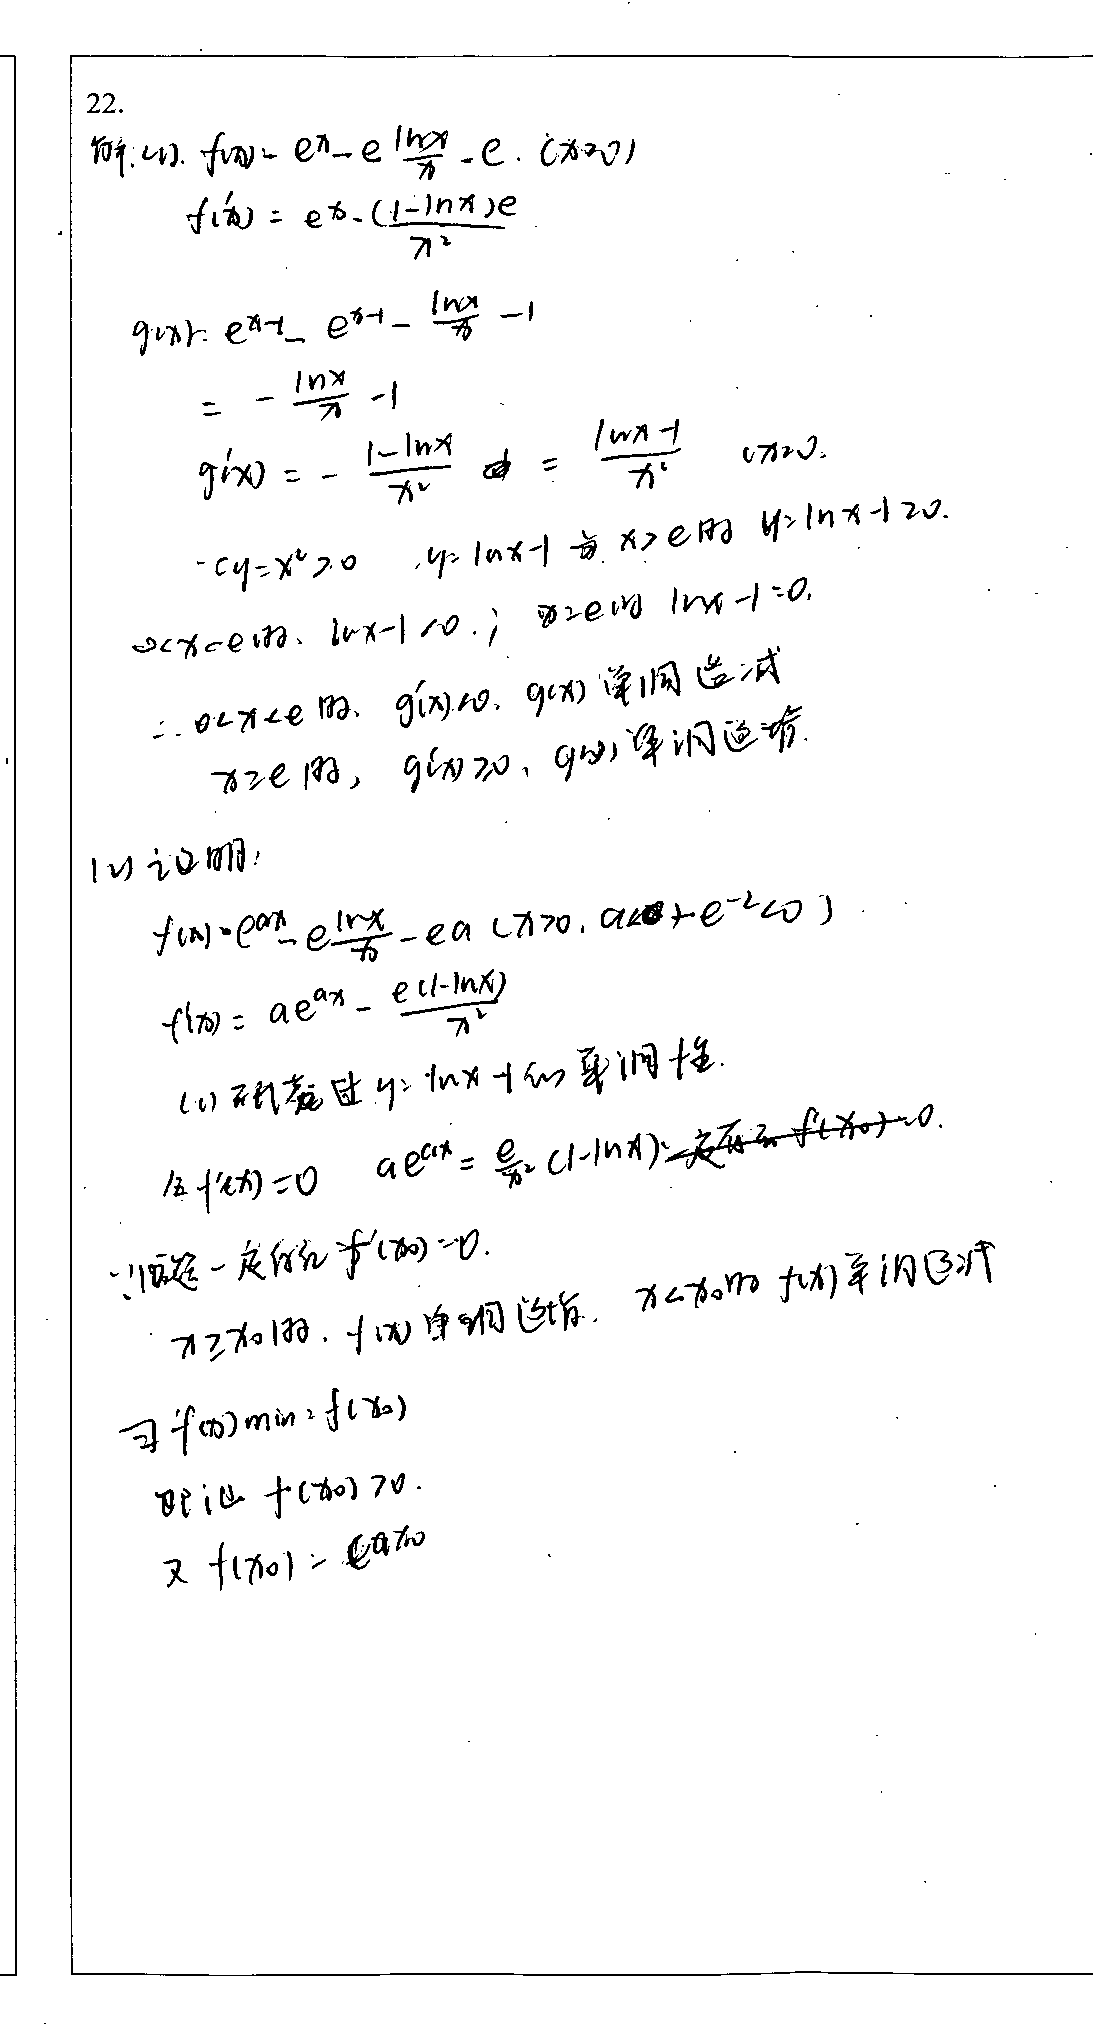 22.
解.(1). f(x)= e^x - e\frac{lnx}{x} - e. (x>0)
f'(x) = e^x - \frac{(1-lnx)e}{x²}
g(x)= e^{x-1} - e^{x-1} - \frac{lnx}{x} - 1
= - \frac{lnx}{x} - 1
g'(x) = - \frac{1-lnx}{x²} = \frac{lnx-1}{x²} (x>0).
y=x²>0 y=lnx-1 x>e时 y=lnx-1>0.
0<x<e时、lnx-1<0.; x=e时 lnx-1=0.
∴ 0<x<e时、g'(x)<0、g(x)单调递减
x≥e时, g'(x)≥0、g(x)单调递增.
(2)证明:
f(x)=e^{ax} - e\frac{lnx}{x} - ea (x>0,
f'(x) = ae^{ax} - \frac{e(1-lnx)}{x²}
(1) y=lnx-1的单调性.
令f'(x)=0 ae^{ax} = \frac{e}{x²}(1-lnx)
一定存在f'(x₀)=0.
x≥x₀时.f(x)单调递增. x<x₀时f(x)单调递减
f(x)min=f(x₀)
即证f(x₀)>0.
又f(x₀)=e^{ax₀}